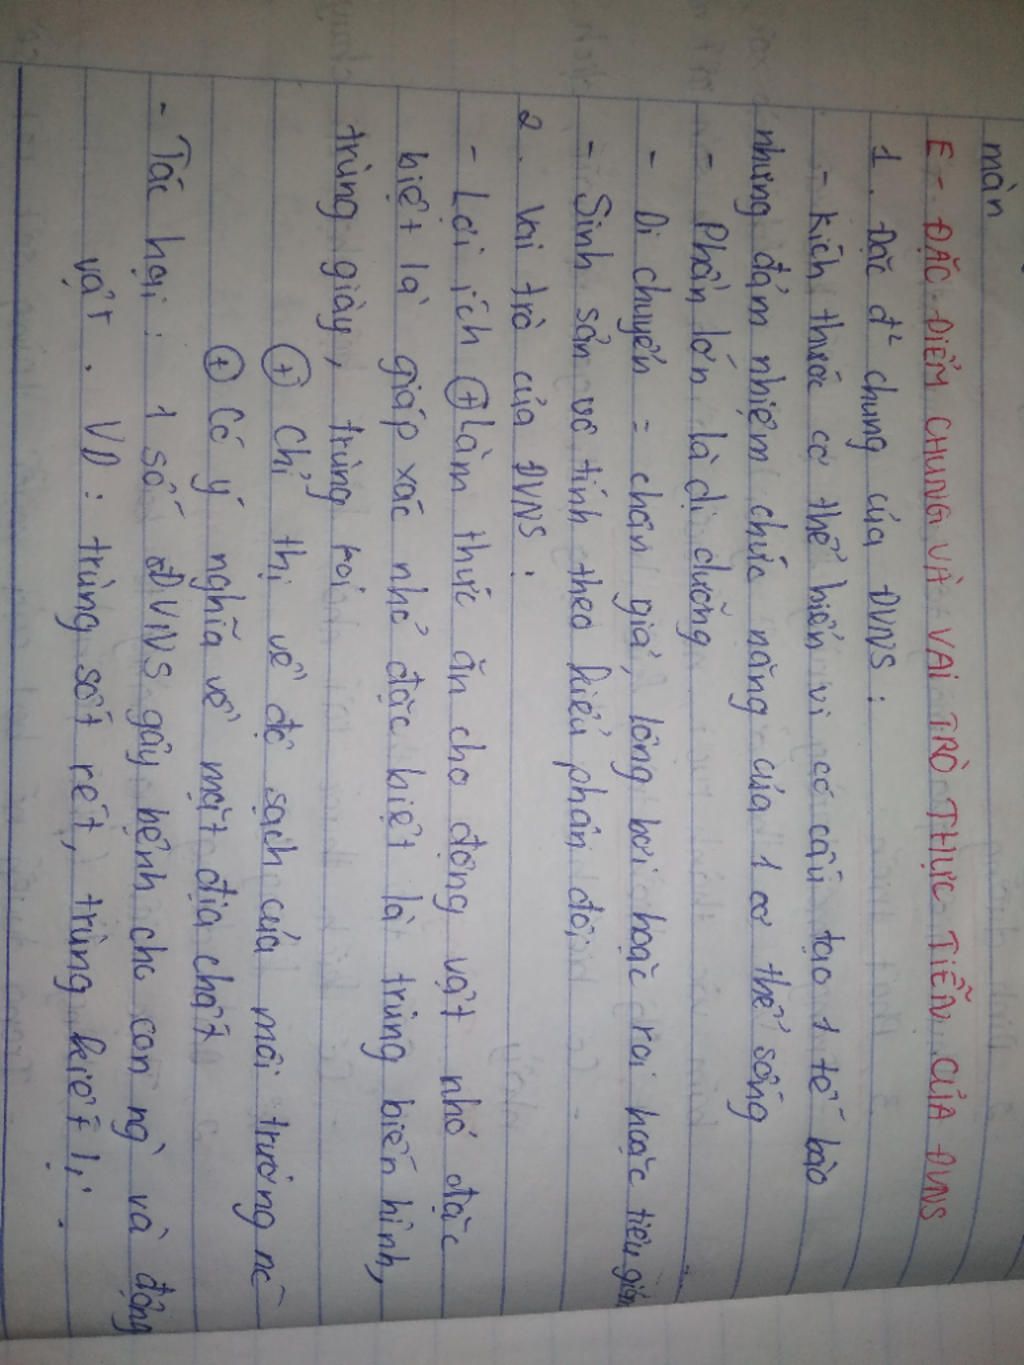 màn
E - ĐẶC ĐIỂM CHUNG VÀ VAI TRÒ THỰC TIỄN CỦA ĐVNS
1. Đặc đ² chung của ĐVNS:
- Kích thước cơ thể hiển vi có cấu tạo 1 tế bào
nhưng đảm nhiệm chức năng của 1 cơ thể sống
- Phần lớn là dị dưỡng
- Di chuyển = chân giả, lông bơi hoặc roi hoặc tiêu giảm
- Sinh sản vô tính theo kiểu phân đôi
2. Vai trò của ĐVNS:
- Lợi ích ⊕ làm thức ăn cho động vật nhỏ đặc
biệt là giáp xác nhỏ đặc biệt là trùng biến hình,
trùng giày, trùng roi
⊕ Chỉ thị về độ sạch của môi trường nc
⊕ Có ý nghĩa về mặt địa chất
- Tác hại: 1 số ĐVNS gây bệnh cho con ng và động
vật. VD: trùng sốt rét, trùng kiết lị.